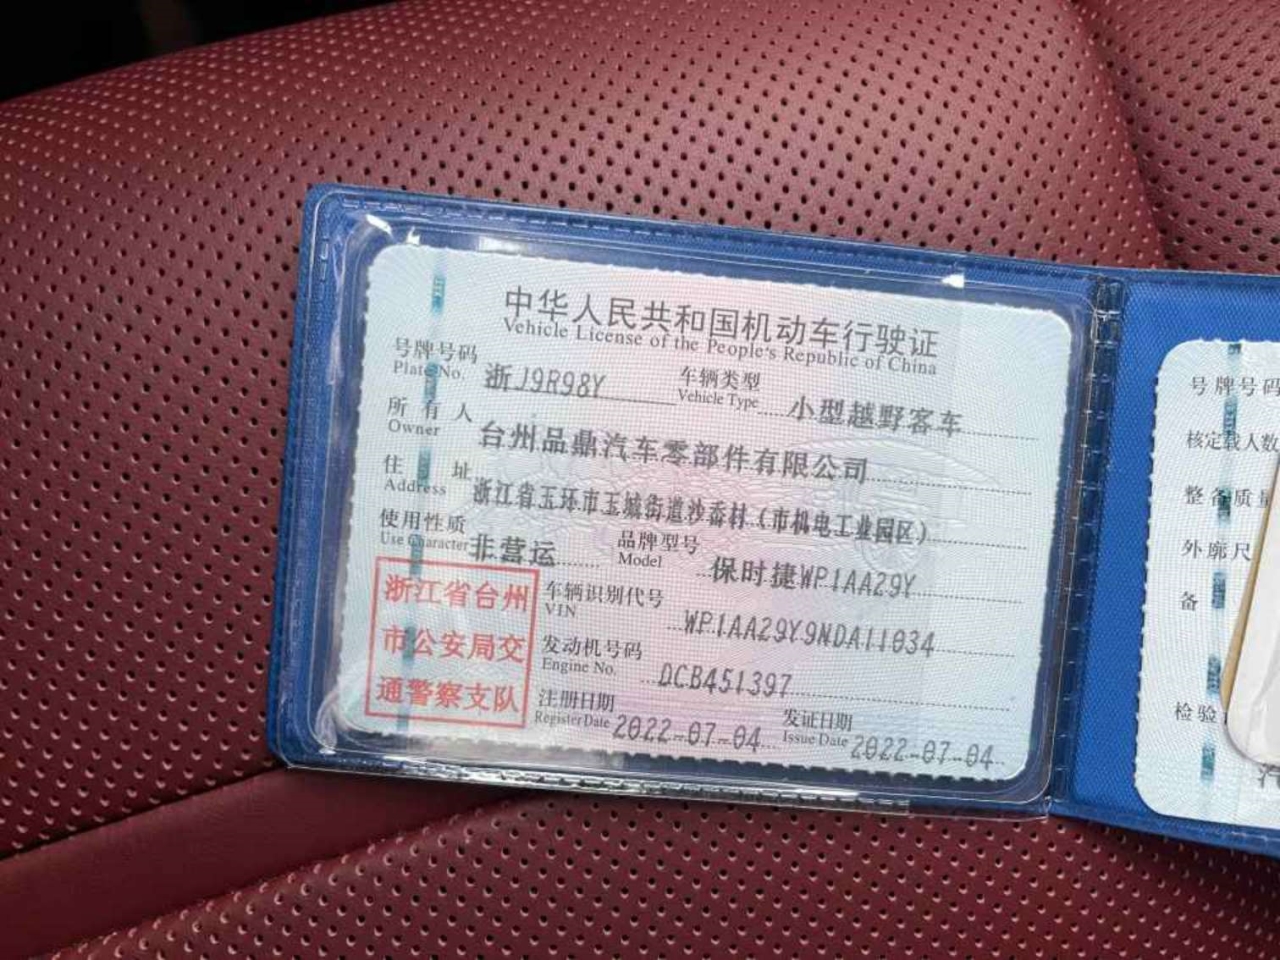 中华人民共和国机动车行驶证
Vehicle License of the People's Republic of China
号牌号码 浙J9R98Y 车辆类型 小型越野客车
Plate No. Vehicle Type
所有人 台州品鼎汽车零部件有限公司
Owner
住址 浙江省玉环市玉城街道沙岙村(市机电工业园区)
Address
使用性质 非营运 品牌型号 保时捷WP1AA29Y
Use Character Model
浙江省台州
市公安局交
通警察支队
车辆识别代号 WP1AA29Y9NDA11034
VIN
发动机号码 DCB451397
Engine No.
注册日期 2022-07-04 发证日期 2022-07-04
Register Date Issue Date
号牌号码
核定载人数
整备质量
外廓尺
备
检验